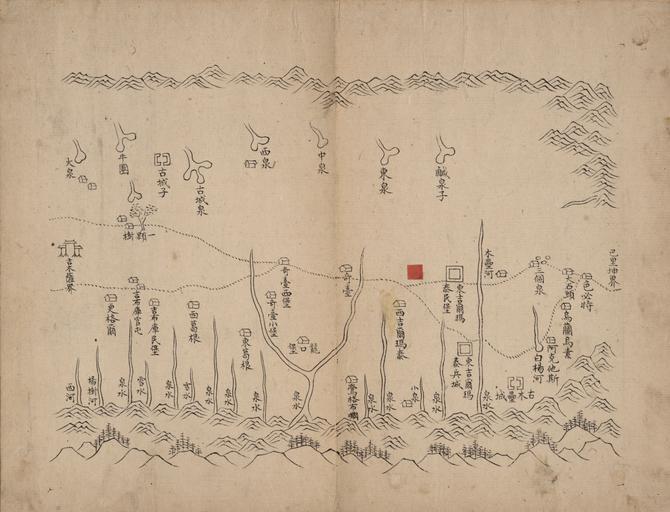 大泉
牛圈
古城子
古城泉
西泉
中泉
東泉
鹹泉子
一顆樹
吉木薩界
奇臺西堡
奇臺
奇臺小堡
吉布庫官屯
吉布庫民堡
更格爾
西葛根
東葛根
西吉爾瑪泰
東吉爾瑪泰民堡
東吉爾瑪泰兵城
木壘河
三個泉
大石頭
色必特
烏蘭烏素
阿克他斯
白楊河
古木壘城
巴里坤界
西河
楊樹河
泉水
雪水
泉水
泉水
泉水
泉水
泉水
泉水
泉水
泉水